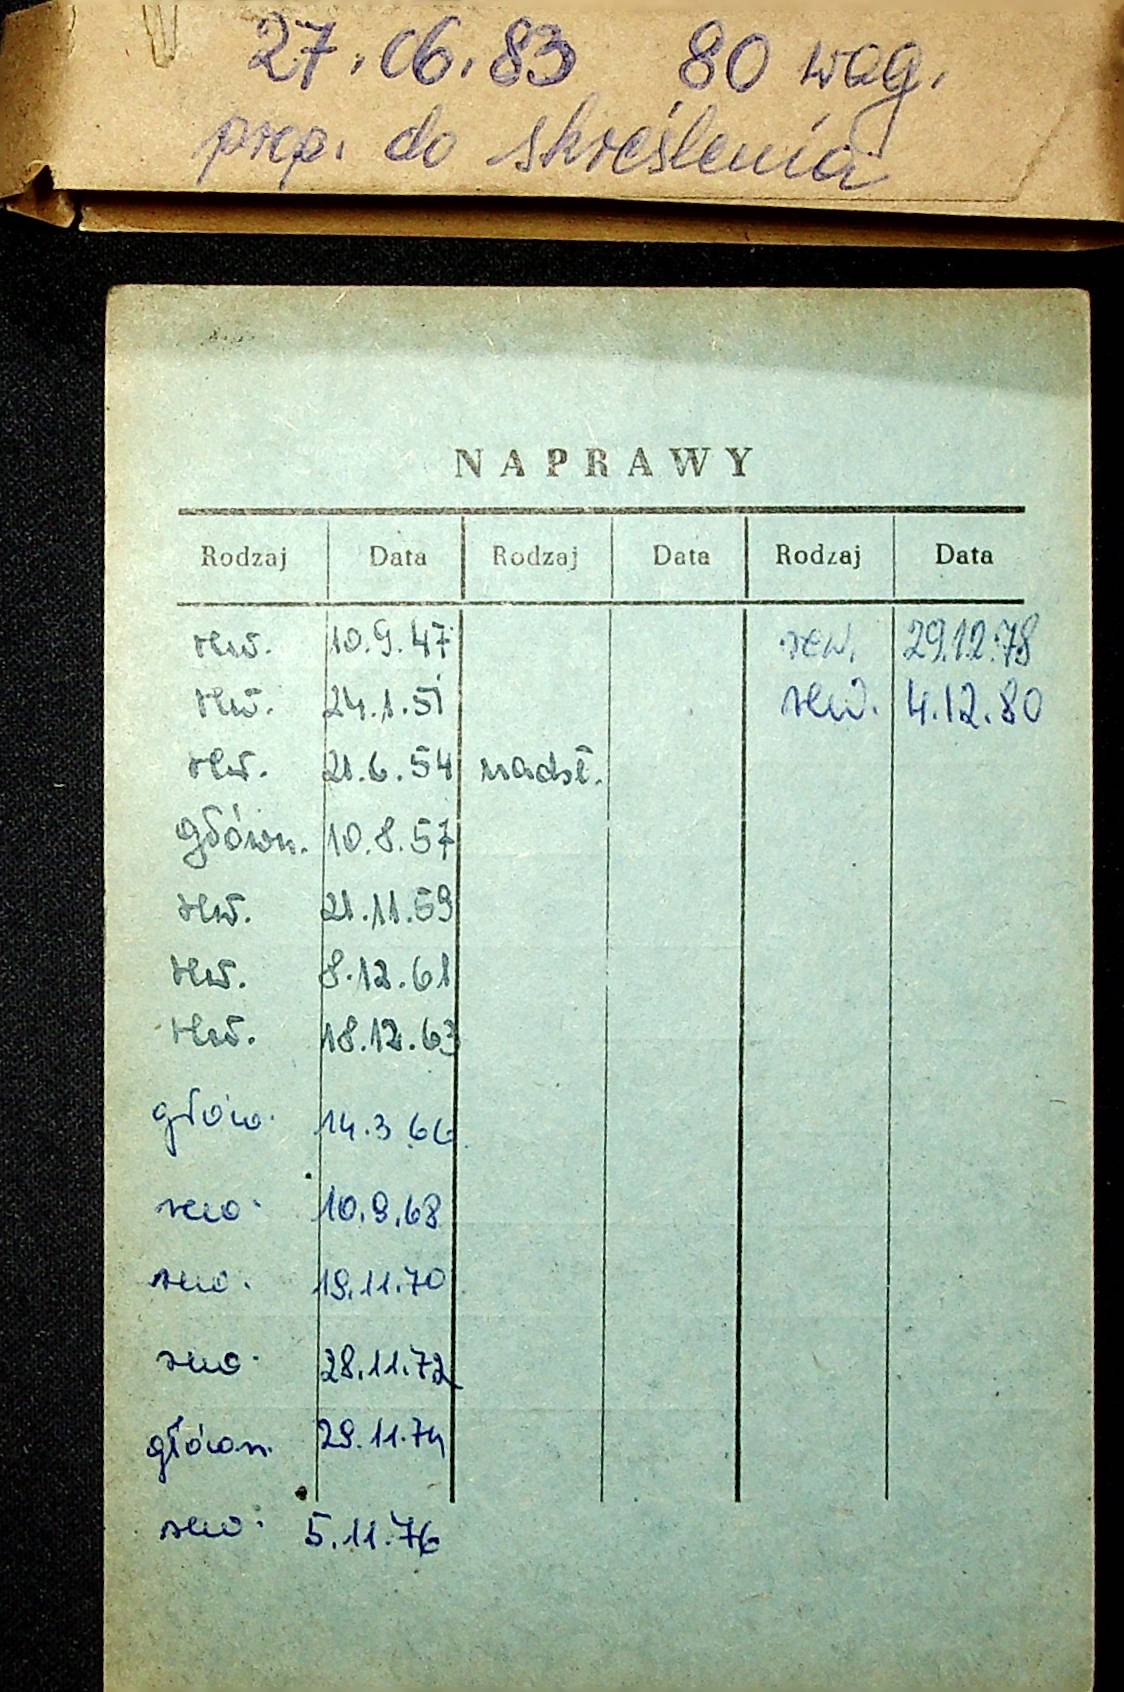 27.06.83 80 wag.
prop. do skreślenia
NAPRAWY
Rodzaj Data Rodzaj Data Rodzaj Data
rew. 10.9.47 rew. 29.12.78
rew. 24.1.51 rew. 4.12.80
rew. 21.6.54 nadzł.
główn. 10.8.57
rew. 21.11.59
rew. 8.12.61
rew. 18.12.63
głów. 14.3 66
rew. 10.9.68
rew. 19.11.70
rew. 28.11.72
główn. 29.11.74
rew. 5.11.76